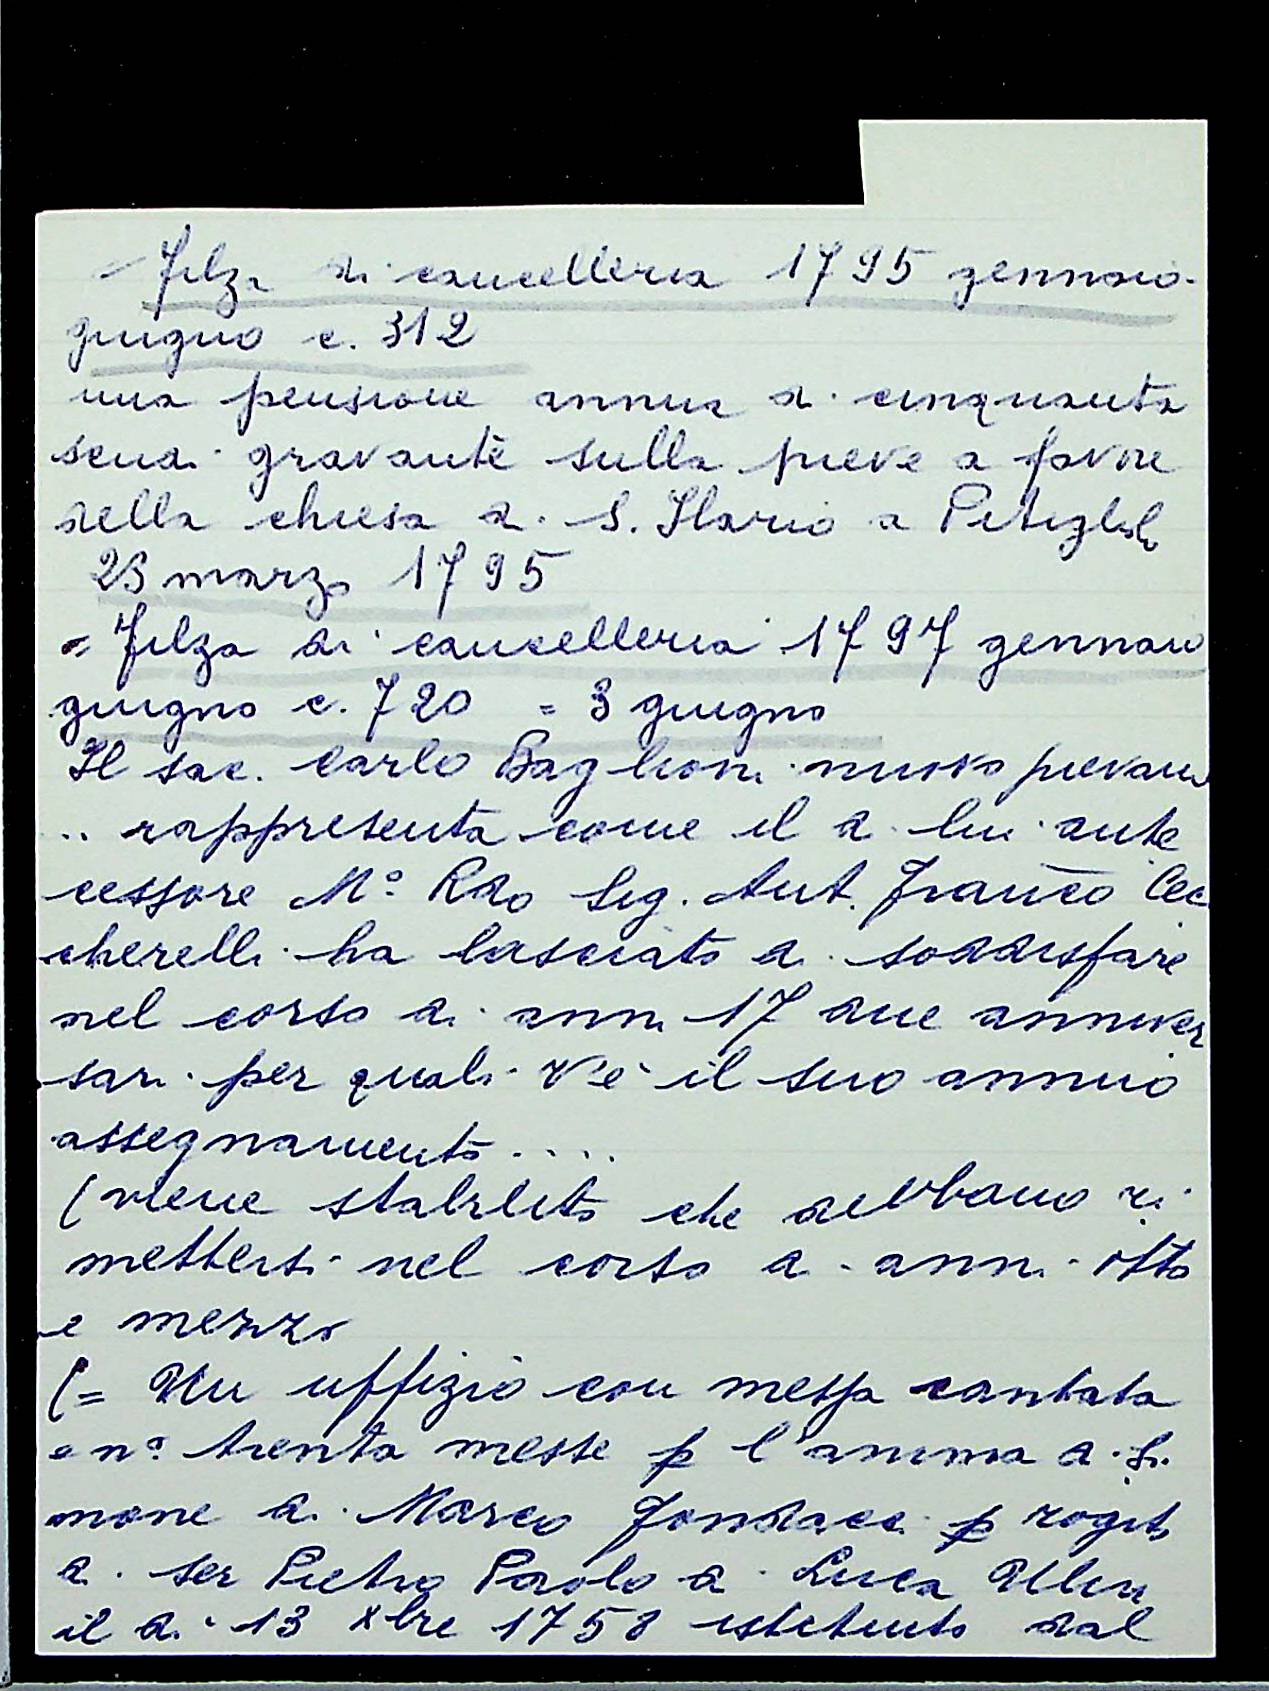 - Filza di cancelleria 1795 gennaio-
giugno c. 312
una pensione annua di cinquanta
scudi gravante sulla pieve a favore
della chiesa di S. Ilario a
23 marzo 1795
= Filza di cancelleria 1797 gennaio
giugno c. 720 = 3 giugno
Il sac. Carlo Baglioni nuovo pievano
.. rappresenta come il di lui ante
cessore M° Rdo Sig. Ant. Franco Cec
cherelli ha lasciato di soddisfare
nel corso di anni 17 due anniver
sari per quali v'è il suo annuo
assegnamento.....
(viene stabilito che debbano ri
mettersi nel corso di anni otto
e mezzo
(= Un uffizio con messa cantata
e n° trenta messe p l'anima di Si
mone di Marco Fondacci p rogito
di ser Pietro Paolo di Luca
il dì 13 Xbre 1758 istituito dal